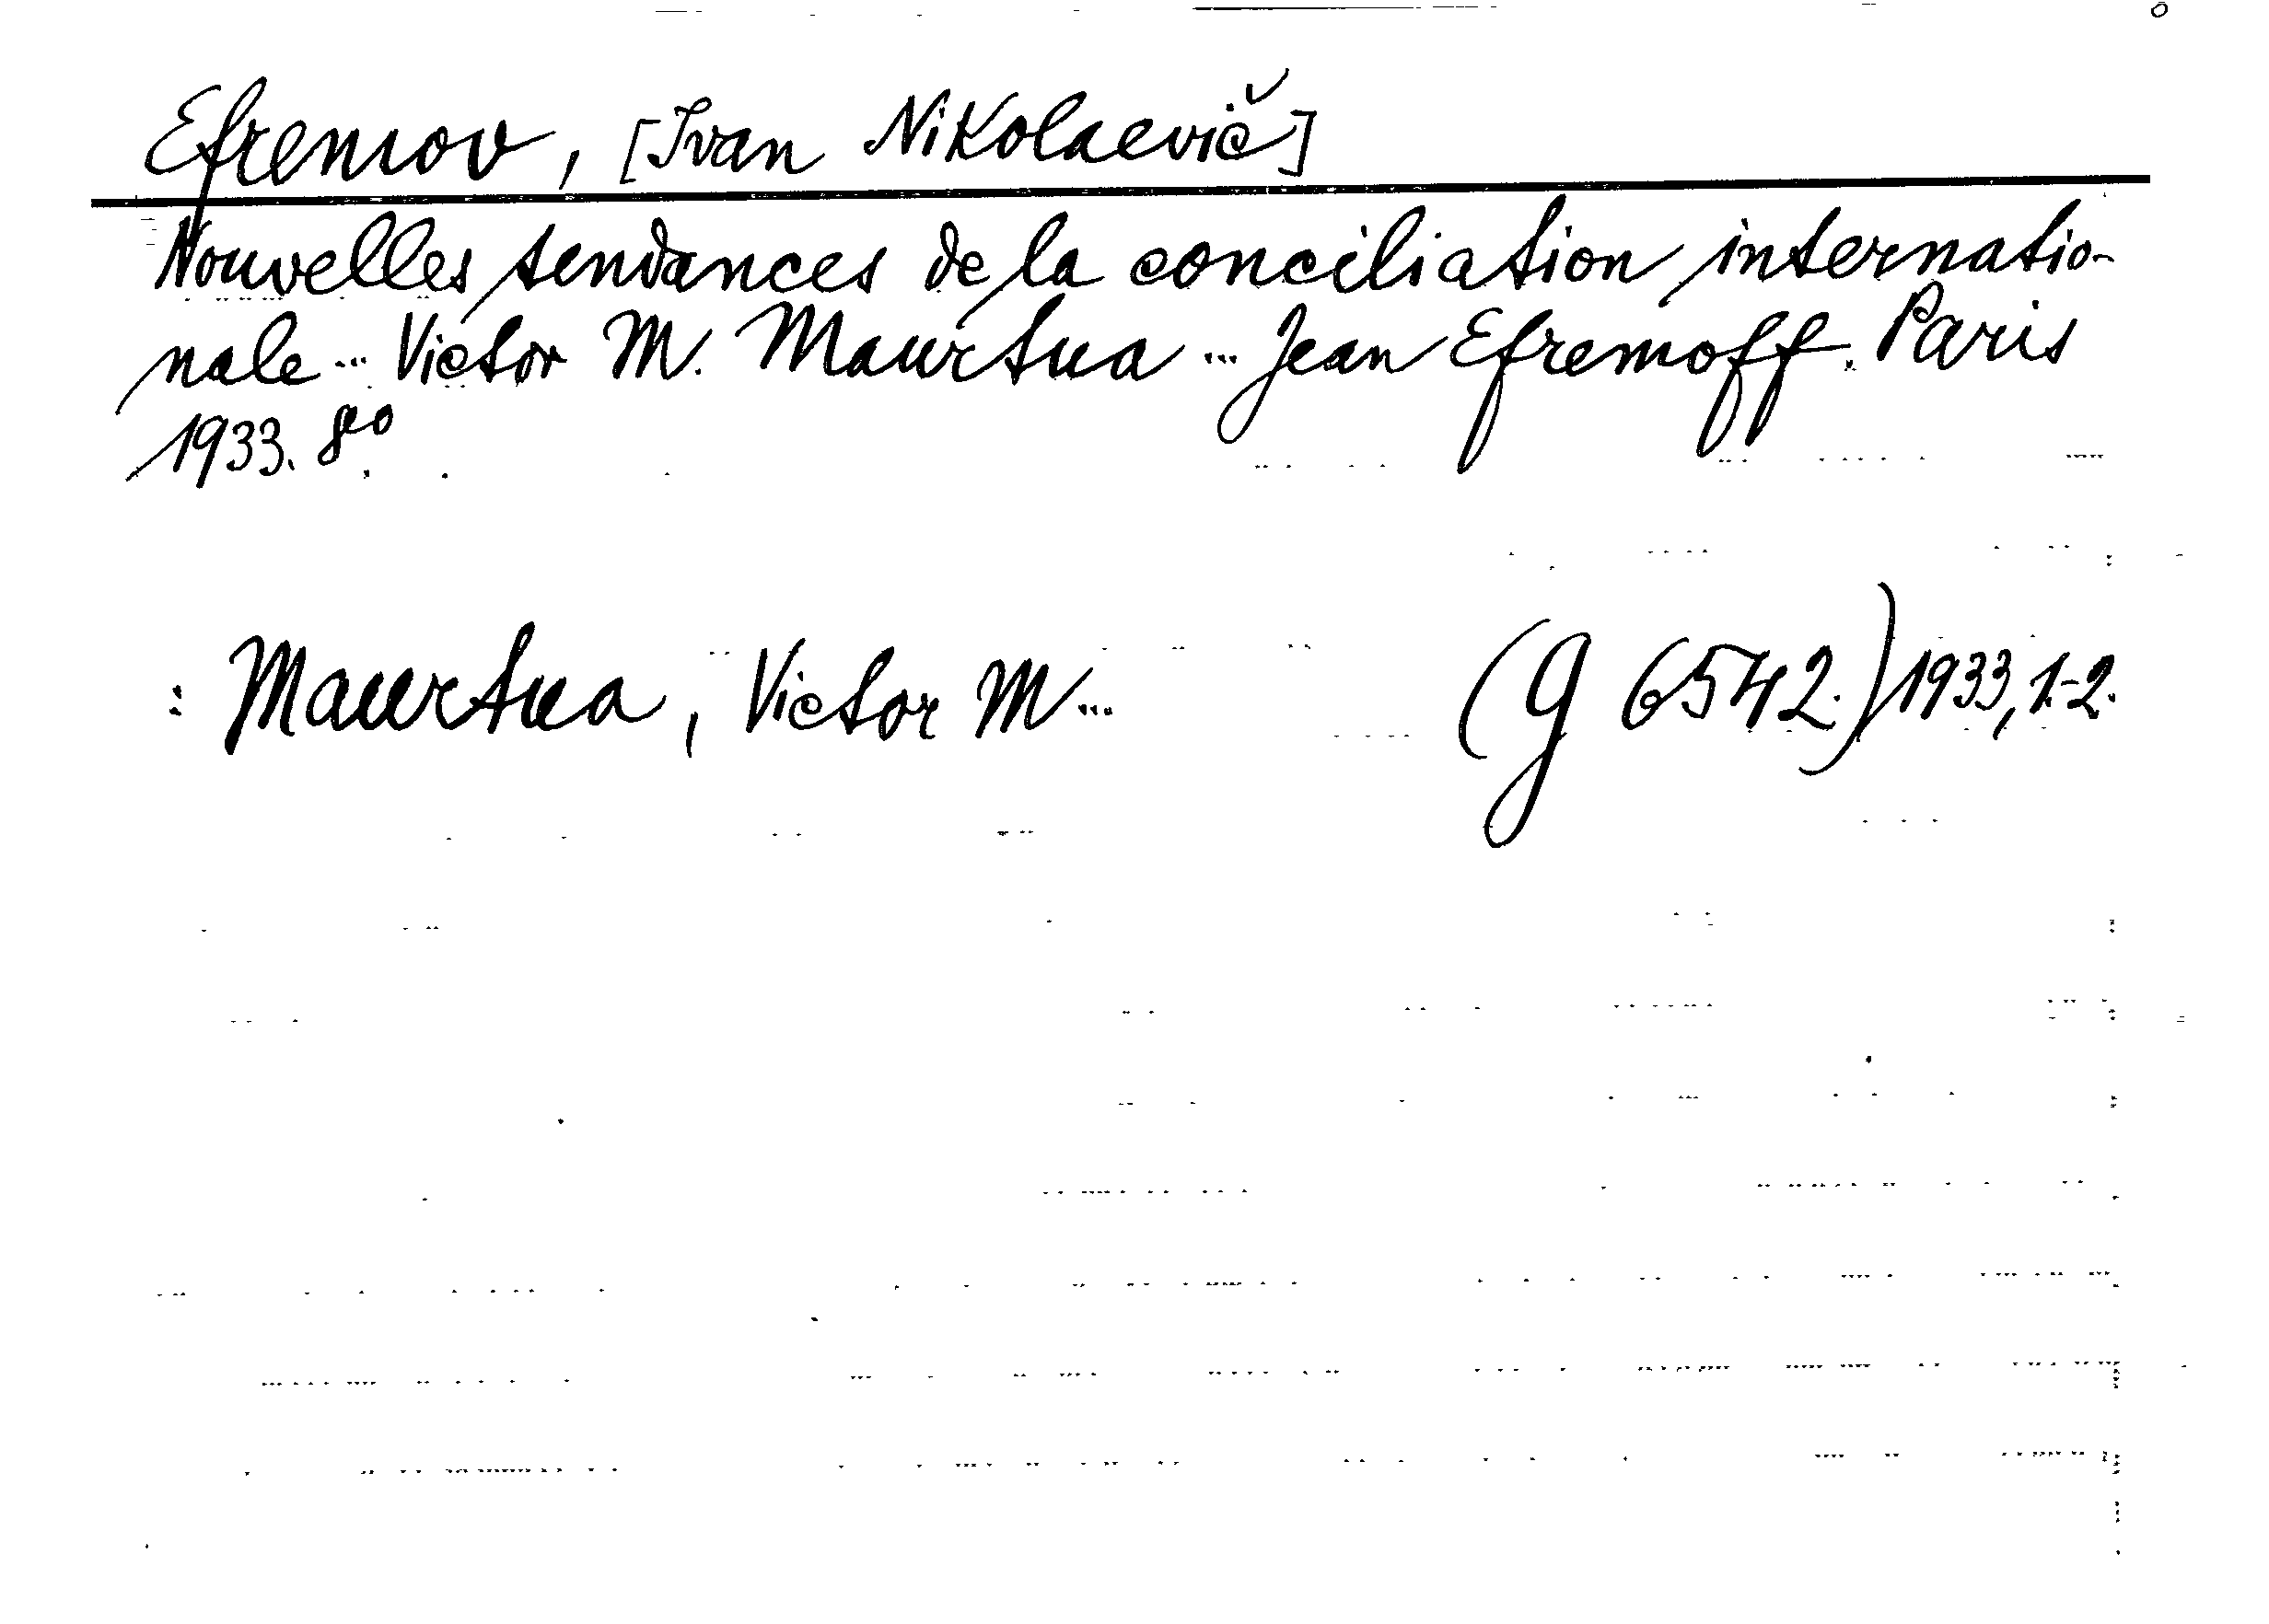 Efremov, [Ivan Nikolaevič]
Nouvelles tendances de la conciliation internatio-
nale ... Victor M. Maurtua ... Jean Efremoff. Paris
1933. 8vo
: Maurtua, Victor M...
(g 6542.) 1933, 1.-2.